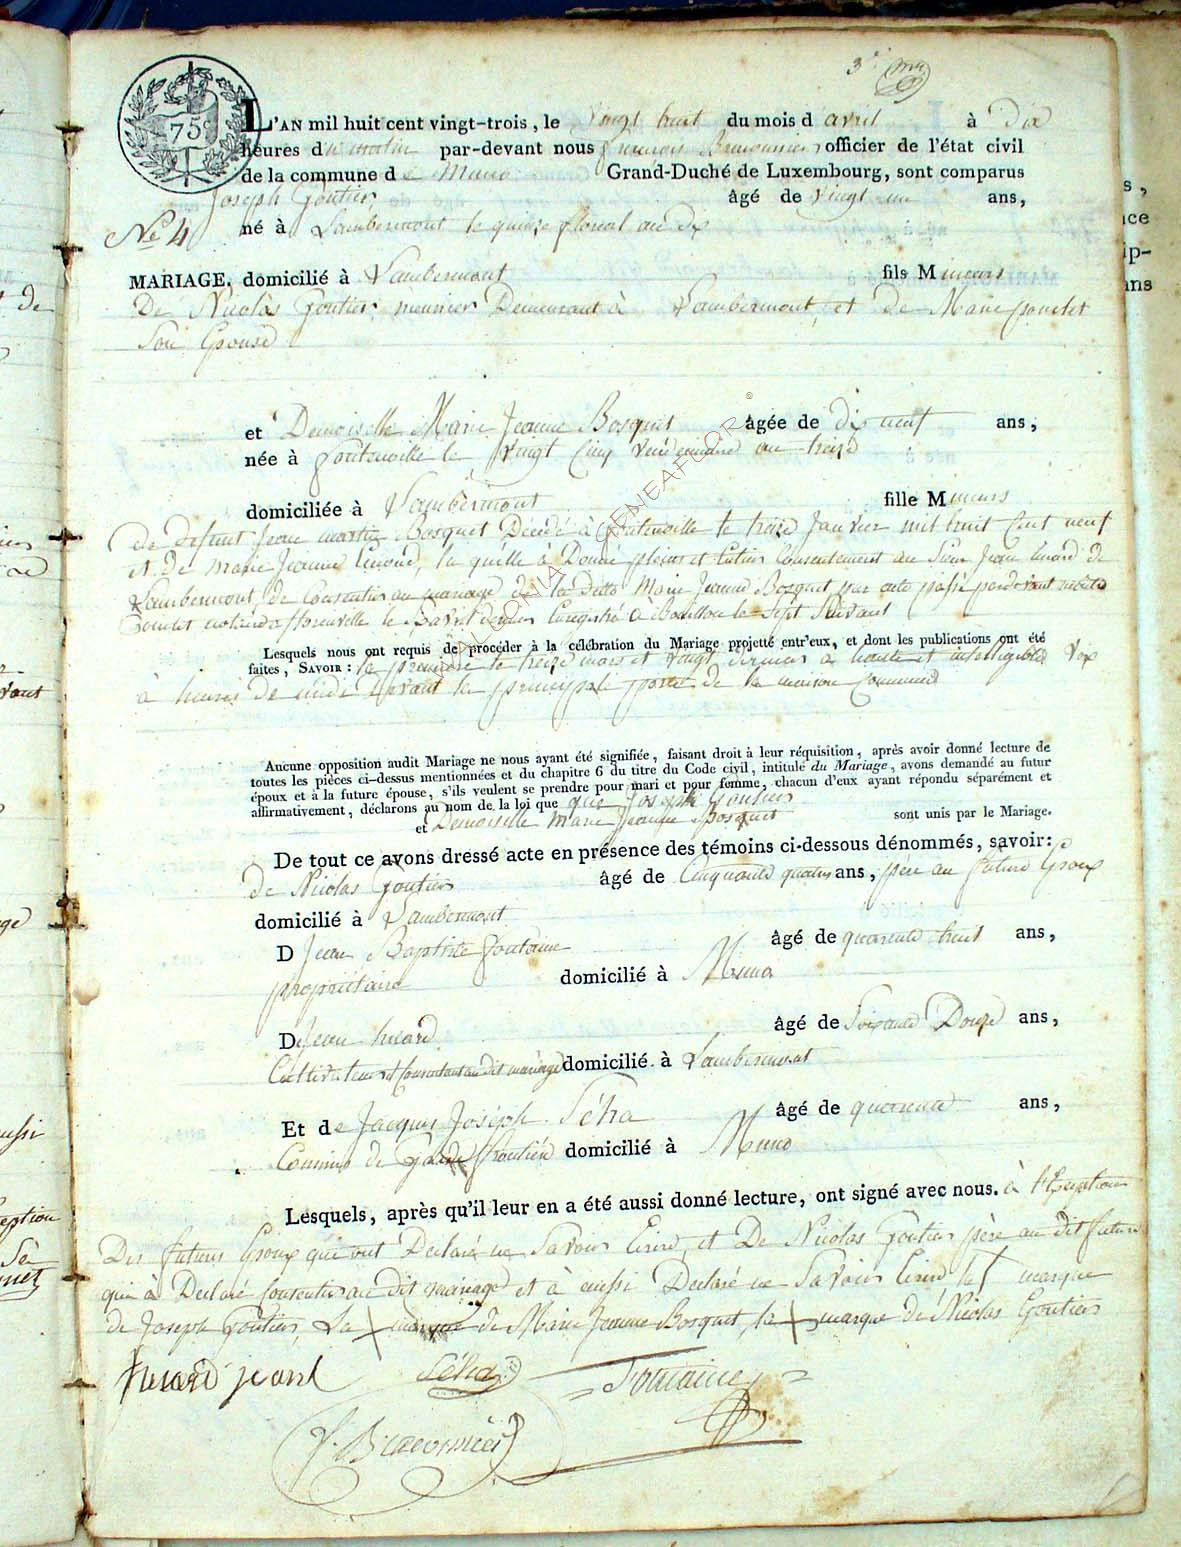 3e
75c
L'AN mil huit cent vingt-trois, le vingt huit du mois d avril à Dix
heures du matin par-devant nous françois officier de l'état civil
de la commune de Muno Grand-Duché de Luxembourg, sont comparus
Joseph Goutier âgé de vingt un ans,
No 4 né à Lambermont le quinze floreal an dix
MARIAGE. domicilié à Lambermont fils Mineurs
De Nicolas Goutier meunier Demeurant à Lambermont, et de Marie ponclet
Son Epouse
et Demoiselle Marie Jeanne Bosquet âgée de dix neuf ans,
née à fontenoille le vingt Cinq vendemiaire an treize
domiciliée à Lambermont fille Mineurs
de defunt Jean martin Bosquet Decedé à fontenoille le treize Janvier mil huit Cent neuf
et de marie Jeanne la quelle à Donné pleins et Entier Consentement au Sieur Jean huard de
Lambermont, de Consentir au mariage de la ditte Marie Jeanne Bosquet par acte passé pardevant
notaire à florenville le avril dernier Enregistré à Bouillon le Sept Suivant
Lesquels nous ont requis de procéder à la célébration du Mariage projetté entr'eux, et dont les publications ont été
faites, SAVOIR : la premiere le treize mars et vingt à haute et intelligible voix
à heures de midi devant la principale porte de la maison Commune
Aucune opposition audit Mariage ne nous ayant été signifiée, faisant droit à leur réquisition, après avoir donné lecture de
toutes les pièces ci-dessus mentionnées et du chapitre 6 du titre du Code civil, intitulé du Mariage, avons demandé au futur
époux et à la future épouse, s'ils veulent se prendre pour mari et pour femme, chacun d'eux ayant répondu séparément et
affirmativement, déclarons au nom de la loi que que Joseph Goutier
et Demoiselle marie Jeanne Bosquet sont unis par le Mariage.
De tout ce avons dressé acte en présence des témoins ci-dessous dénommés, savoir:
de Nicolas Goutier âgé de Cinquante quatre ans, père au futur Epoux
domicilié à Lambermont
D Jean Baptiste fontaine âgé de quarente huit ans,
propriétaire domicilié à Muno
De Jean huard âgé de Soixante Douze ans,
Cultivateur et Consentant au dit mariage domicilié à Lambermont
Et de Jacques Joseph Séha âgé de quarente ans,
Commis de domicilié à Muno
Lesquels, après qu'il leur en a été aussi donné lecture, ont signé avec nous. à l'Exception
Des futurs Epoux qui ont Declaré ne Savoir Ecrire, et De Nicolas Goutier père au dit futur
qui à Declaré Consentir au dit mariage et à aussi Declaré ne Savoir Ecrire la marque
de Joseph Goutier, La marque de Marie Jeanne Bosquet, la marque de Nicolas Goutier
huard jean Séha Fontaine
WALLONIA GENEAFLOR ©